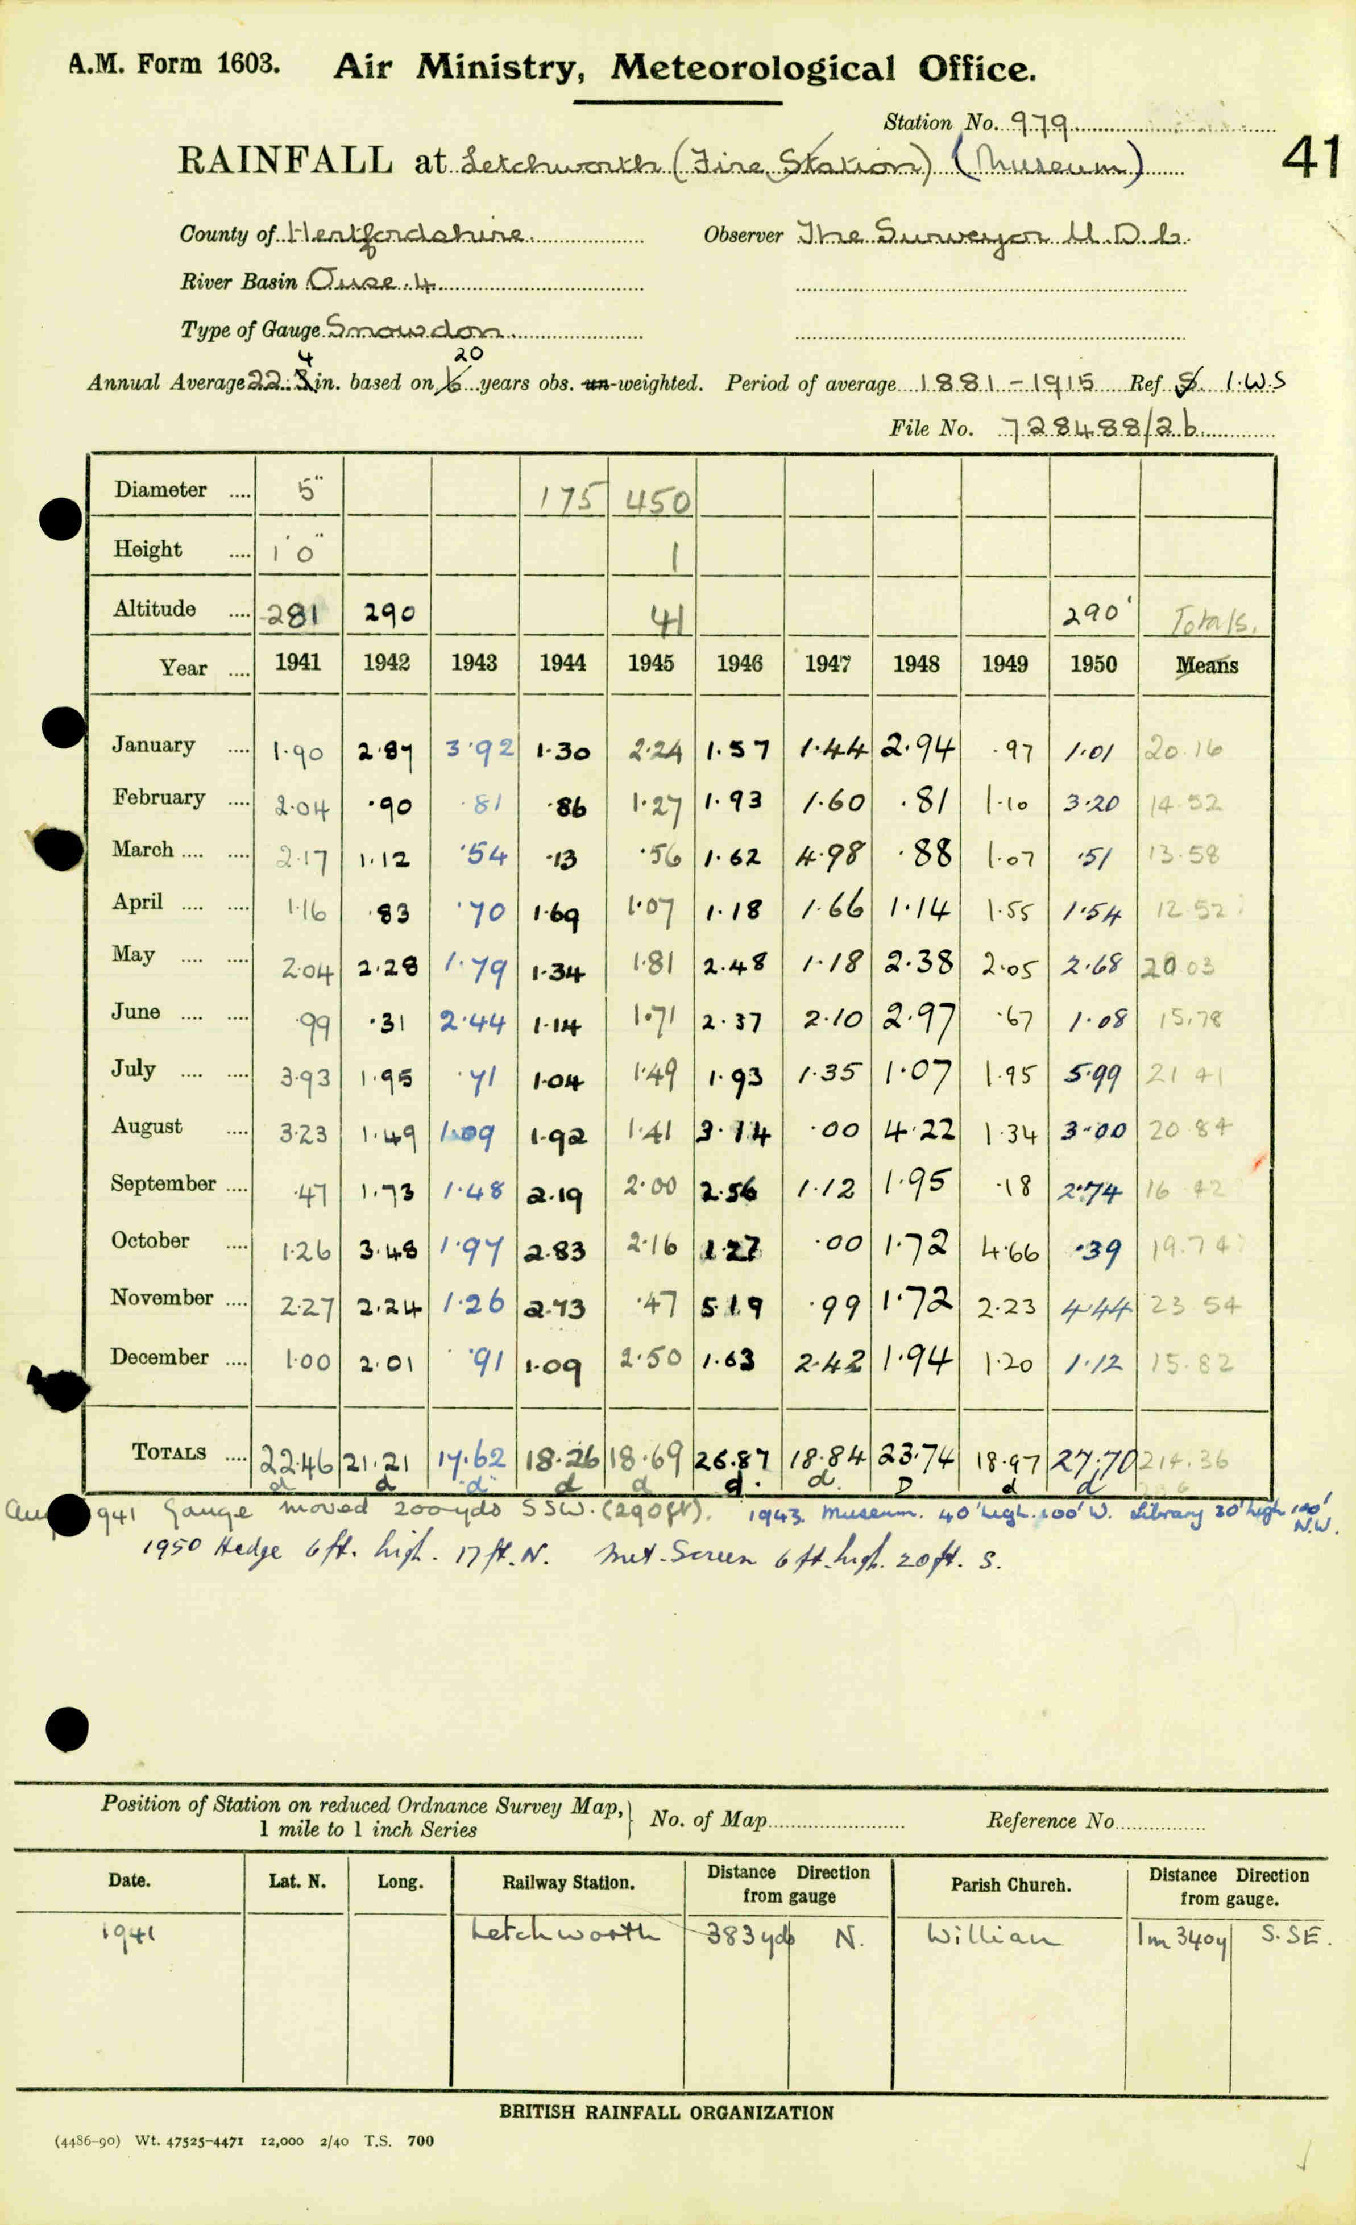 A.M. Form 1603. Air Ministry, Meteorological Office.
Station No. 979
RAINFALL at Letchworth (Fire Station) (Museum) 41
County of Hertfordshire Observer The Surveyor U.D.C.
River Basin Ouse.4
Type of Gauge Snowdon
4 20
Annual Average 22. in. based on 6 years obs. un-weighted. Period of average 1881-1915 Ref S. I.W.S
File No. 728488/26
Diameter .... 5" 175 450
Height .... 1'0" 1
Altitude .... 281 290 41 290' Totals.
Year .... 1941 1942 1943 1944 1945 1946 1947 1948 1949 1950 Means
January .... 1.90 2.87 3.92 1.30 2.24 1.57 1.44 2.94 .97 1.01 20.16
February .... 2.04 .90 .81 .86 1.27 1.93 1.60 .81 1.10 3.20 14.52
March .... .... 2.17 1.12 .54 .13 .56 1.62 4.98 .88 1.07 .51 13.58
April .... .... 1.16 .83 .70 1.69 1.07 1.18 1.66 1.14 1.55 1.54 12.52
May .... .... 2.04 2.28 1.79 1.34 1.81 2.48 1.18 2.38 2.05 2.68 20.03
June .... .... .99 .31 2.44 1.14 1.71 2.37 2.10 2.97 .67 1.08 15.78
July .... .... 3.93 1.95 .71 1.04 1.49 1.93 1.35 1.07 1.95 5.99 21.41
August .... 3.23 1.49 1.09 1.92 1.41 3.14 .00 4.22 1.34 3.00 20.84
September .... .47 1.73 1.48 2.19 2.00 2.56 1.12 1.95 .18 2.74 16.42
October .... 1.26 3.48 1.97 2.83 2.16 1.27 .00 1.72 4.66 .39 19.74
November .... 2.27 2.24 1.26 2.73 .47 5.19 .99 1.72 2.23 4.44 23.54
December .... 1.00 2.01 .91 1.09 2.50 1.63 2.42 1.94 1.20 1.12 15.82
TOTALS .... 22.46 21.21 17.62 18.26 18.69 26.87 18.84 23.74 18.97 27.70 214.36
d d d d d d. d. D d d
941 Gauge moved 200yds SSW. (290ft). 1943. Museum. 40' high. 100' W. Library 30' high 100' N.W.
1950 Hedge 6ft. high. 17ft. N. Met. Screen 6ft. high. 20ft. S.
Position of Station on reduced Ordnance Survey Map, 1 mile to 1 inch Series } No. of Map Reference No
Date. Lat. N. Long. Railway Station. Distance Direction from gauge Parish Church. Distance Direction from gauge.
1941 Letchworth 383yds N. Willian 1m 340y S.SE.
BRITISH RAINFALL ORGANIZATION
(4486-90) Wt. 47525-4471 12,000 2/40 T.S. 700